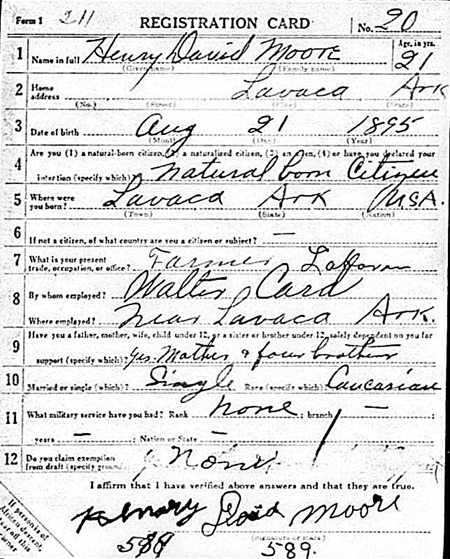 Form 1 211 REGISTRATION CARD No. 20
1 Name in full Henry David Moore Age, in yrs. 21
(Given name) (Family name)
2 Home address Lavaca Ark
(No.) (Street) (City) (State)
3 Date of birth Aug 21 1895
(Month) (Day) (Year)
4 Are you (1) a natural-born citizen, (2) a naturalized citizen, (3) an alien, (4) or have you declared your
intention (specify which)? Natural born Citizen
5 Where were you born? Lavaca Ark USA.
(Town) (State) (Nation)
6 If not a citizen, of what country are you a citizen or subject? —
7 What is your present trade, occupation, or office? Farmer
8 By whom employed? Walter Card
Where employed? Near Lavaca Ark.
9 Have you a father, mother, wife, child under 12, or a sister or brother under 12, solely dependent on you for
support (specify which)? Yes. Mother & four brothers
10 Married or single (which)? Single Race (specify which)? Caucasian
11 What military service have you had? Rank None ; branch — ;
years — ; Nation or State —
12 Do you claim exemption from draft (specify grounds)? None
I affirm that I have verified above answers and that they are true.
Henary David Moore
If person is of
African descent,
tear off this
corner
589 589